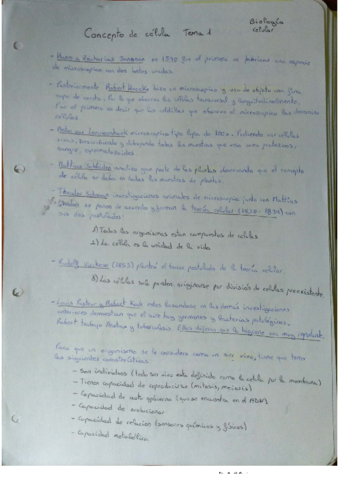 Biología
celular
Concepto de célula Tema 1
- Hans y Zacharias Janssen en 1590 fue el primero en fabricar una especie
de microscopio con dos lentes unidas.
- Posteriormente Robert Hooke hizo un microscopio y uno de objeto una fina
capa de corcho. En la que observa las células transversal y longitudinalmente.
Fue el primero en decir que las celdillas que observa al microscopio las denomina
células.
- Leeuwenhoek microscopio tipo lupa de 200x. Pudiendo ver células
vivas, describiendo y dibujando todas las muestras que veía como protozoos,
sangre, espermatozoides
- Mattias Schleiden analiza gran parte de las plantas diciendo que el concepto
de célula se daba en todas las muestras de plantas.
- Theodor Schwann investigaciones animales de microscopia junto con Mattias
se ponen de acuerdo y forman la teoría celular (1838-1839) con
sus dos postulados:
1) Todos los organismos están compuestos de células
2) La célula es la unidad de la vida.
- Rudolf Virchow (1855) planteó el tercer postulado de la teoría celular
3) Las células solo pueden originarse por división de células preexistentes
- Louis Pasteur y Robert Koch estos basándose en las demás investigaciones
anteriores demuestran que el aire hay gérmenes y bacterias patológicas.
Robert trabaja Ántrax y tuberculosis. Ellos dijeron que la higiene era muy importante.
Para que un organismo se le considere como un ser vivo, tiene que tener
las siguientes características:
- Son individuos (todo ser vivo está definido como la célula por la membrana)
- Tienen capacidad de reproducirse (mitosis, meiosis)
- Capacidad de auto gobierno (quien encuentra en el ADN)
- Capacidad de evolucionar
- Capacidad de relación (sensores químicos y físicos)
- Capacidad metabólica